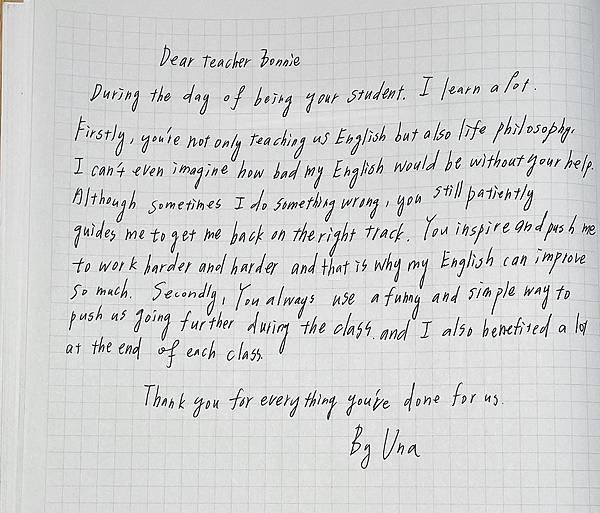 Dear teacher Bonnie
During the day of being your student. I learn a lot.
Firstly, you're not only teaching us English but also life philosophy.
I can't even imagine how bad my English would be without your help.
Although sometimes I do something wrong, you still patiently
guides me to get me back on the right track. You inspire and push me
to work harder and harder and that is why my English can improve
so much. Secondly, You always use a funny and simple way to
push us going further during the class. and I also benefited a lot
at the end of each class.
Thank you for everything you've done for us.
By Una